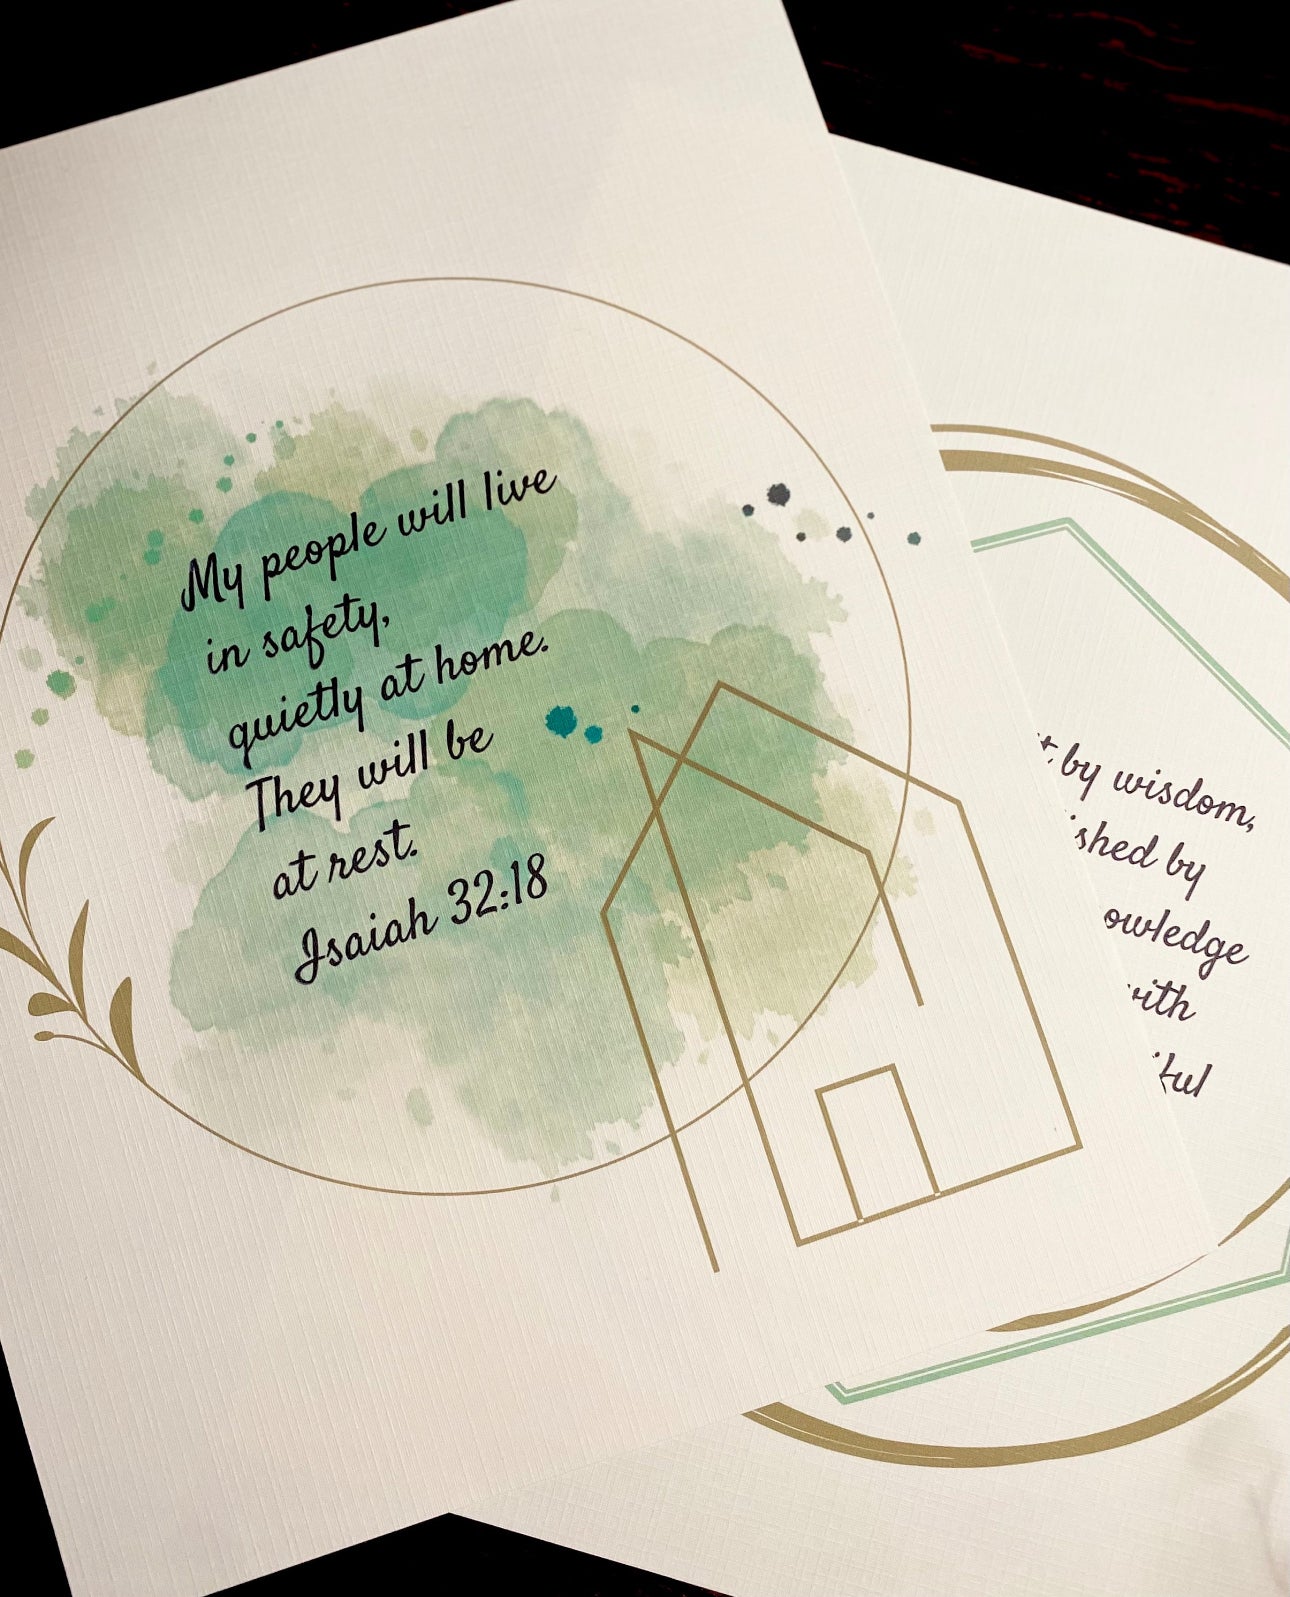 My people will live
in safety,
quietly at home.
They will be
at rest.
Isaiah 32:18
by wisdom,
by
with